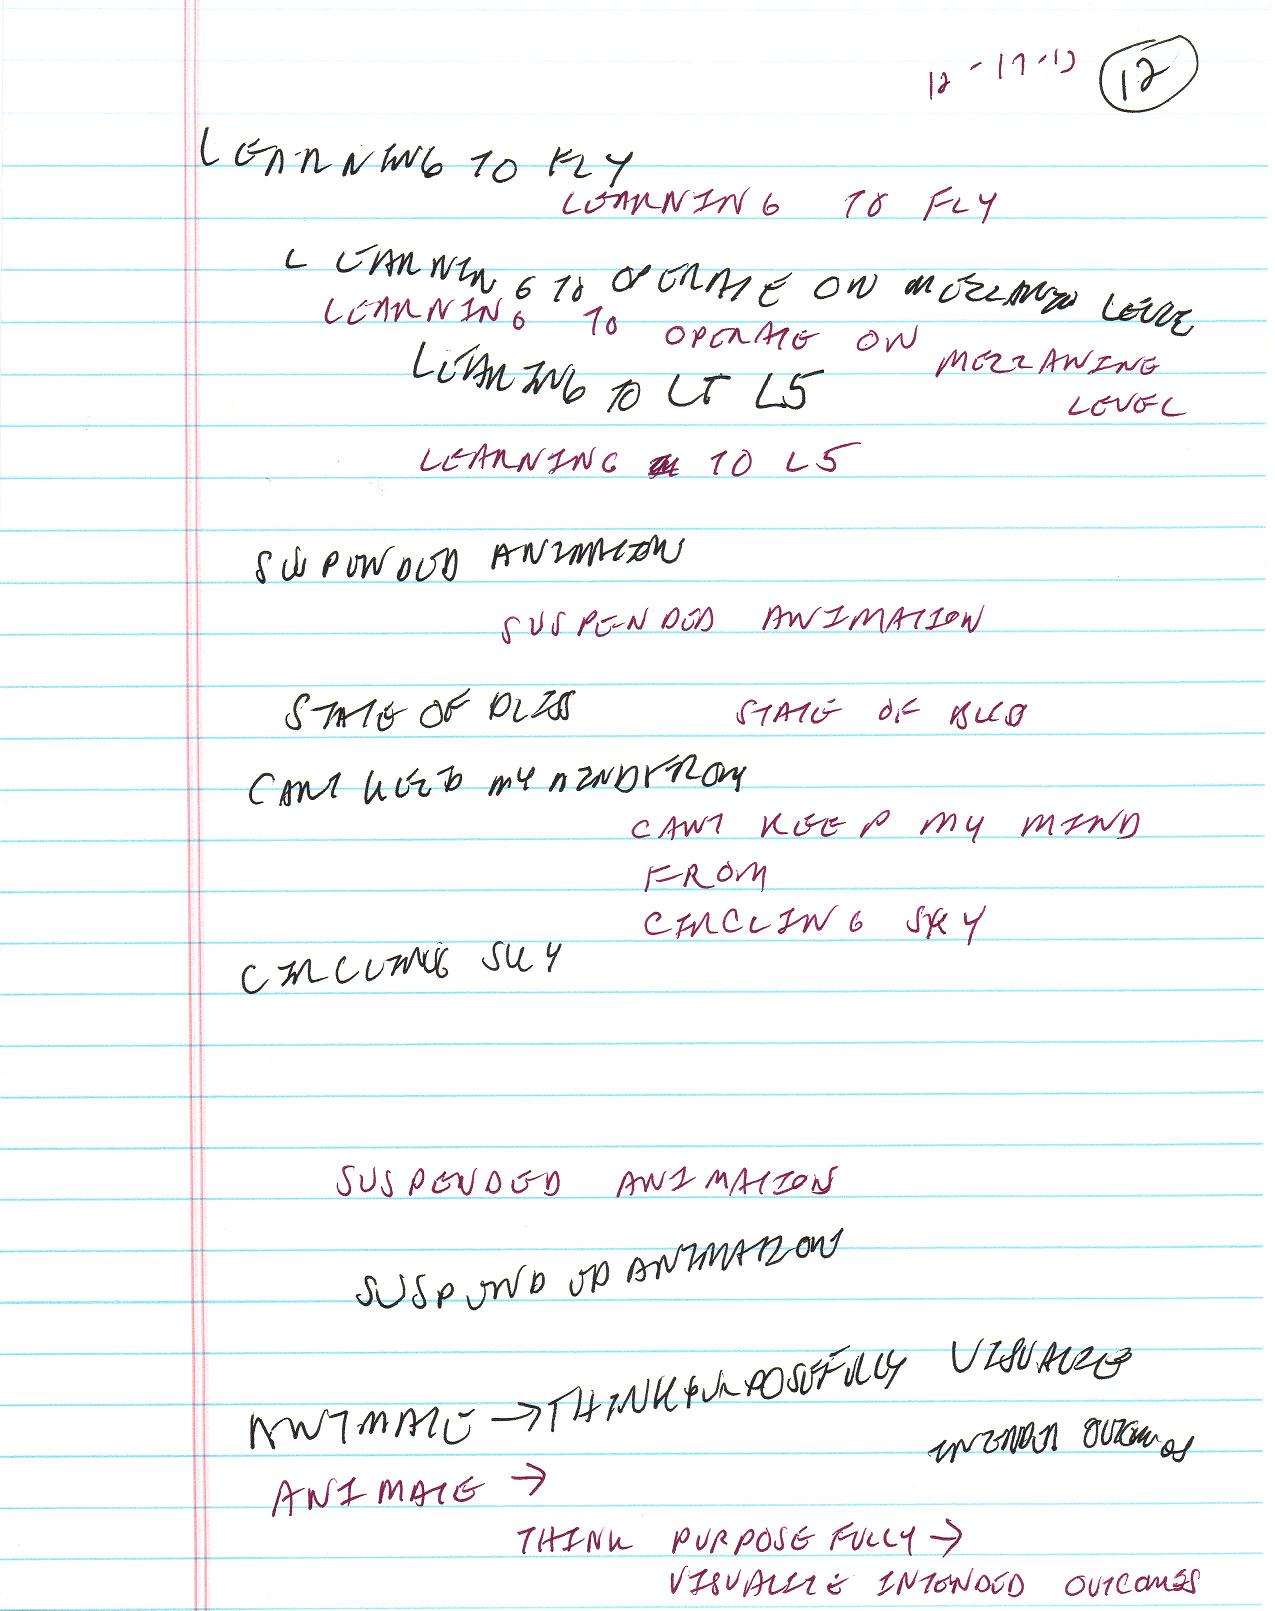 12-17-13 12
LEARNING TO FLY
LEARNING TO FLY
LEARNING TO OPERATE ON MEZZANINE LEVEL
LEARNING TO OPERATE ON MEZZANINE
LEVEL
LEARNING TO LT L5
LEARNING TO L5
SUSPENDED ANIMATION
SUSPENDED ANIMATION
STATE OF BLISS STATE OF BLISS
CANT KEEP MY MIND FROM
CANT KEEP MY MIND
FROM
CIRCLING SKY
CIRCLING SKY
SUSPENDED ANIMATION
SUSPENDED ANIMATION
ANIMATE → THINK PURPOSEFULLY VISUALIZE
INTENDED OUTCOMES
ANIMATE →
THINK PURPOSEFULLY →
VISUALIZE INTENDED OUTCOMES